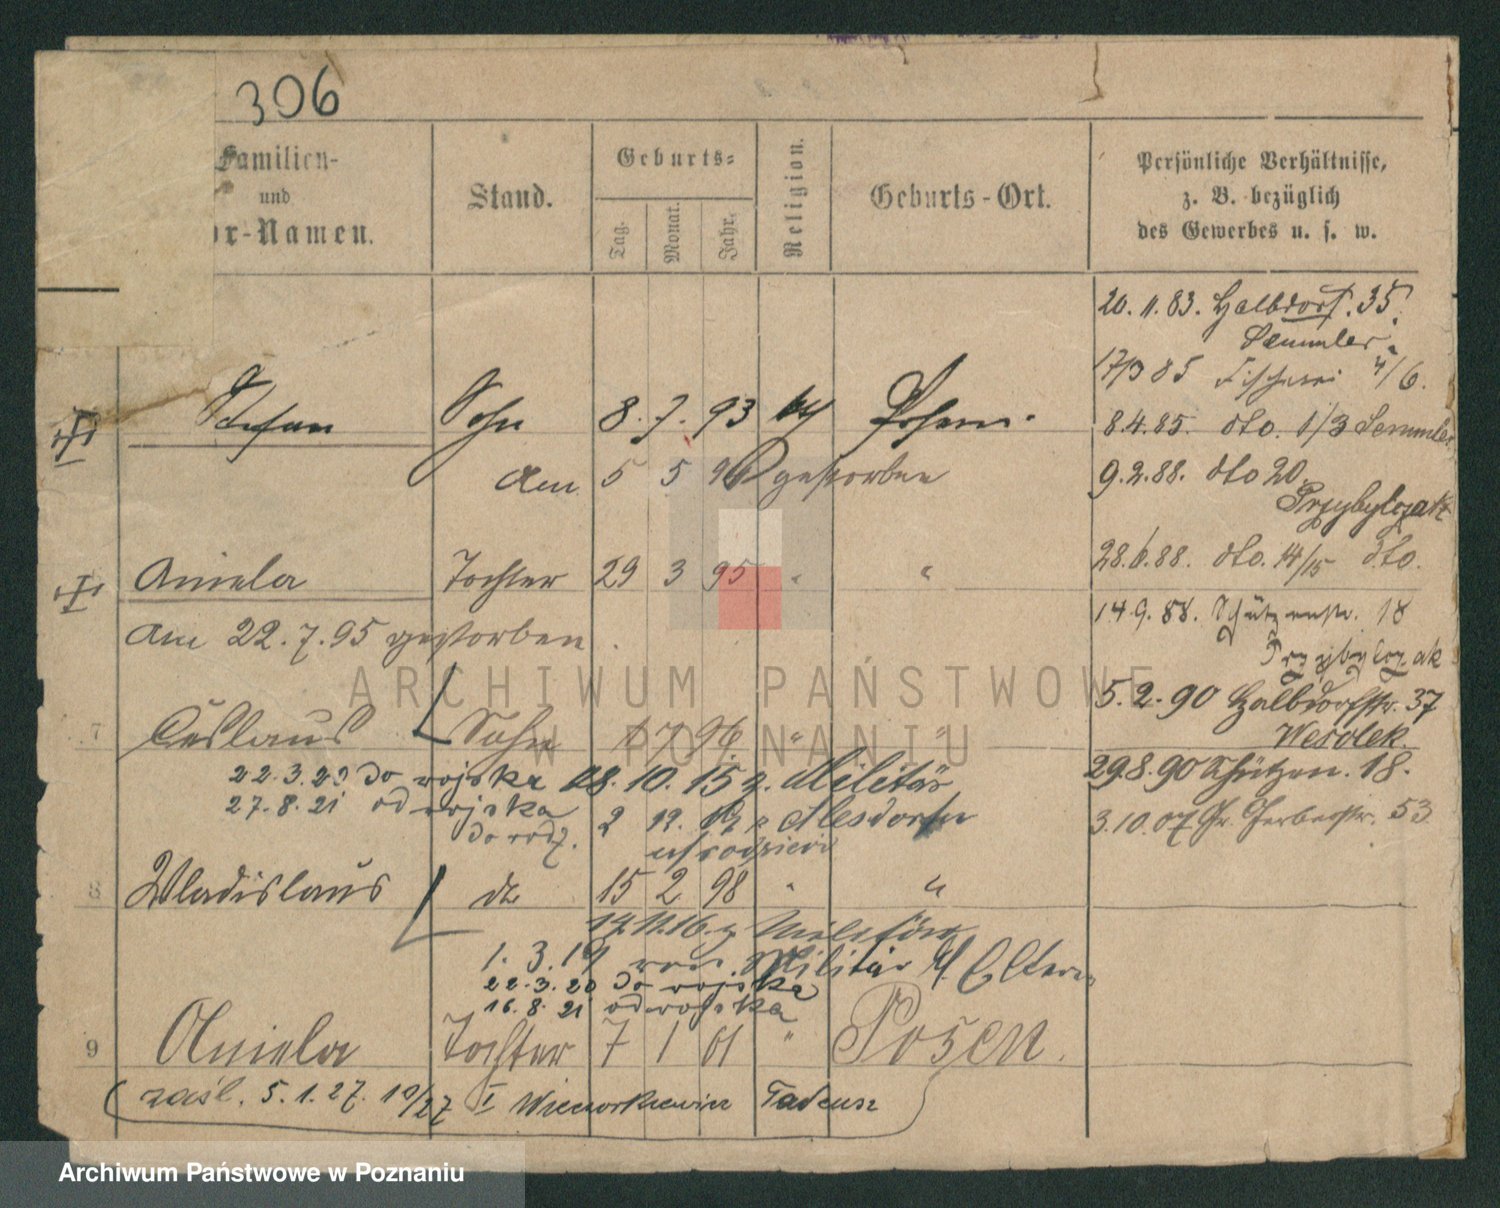 306
Familien-
und
or-Namen.
Stand.
Geburts-
Tag.
Monat.
Jahr.
Religion.
Geburts-Ort.
Persönliche Verhältnisse,
z. B. bezüglich
des Gewerbes u. s. w.
20.11.83. Halbdorf. 35.
Semmler
17/3 85 Fischerei 4/6.
Stefan Sohn 8. 7. 93 Posen.
8.4.85. dto. 1/3 Semmler
am 5 5 96 gestorben
9.2.88. dto 20.
Przybylczak
28.6.88. dto. 14/15 dto.
Aniela Tochter 29 3 95 " "
14.9.88. Schützenstr. 18
am 22.7.95 gestorben
Przybylczak
5.2.90 Halbdorfstr. 37
7 Ceslaus Sohn 1 7 96 " "
Wesolek
22.3.20. do wojska 08.10.15 z. Militär
29.8.90 Schützen. 18.
27.8.21 od wojska
do rodz. 2 12. Alsdorf
3.10.07 Gr. Gerberstr. 53
8 Wladislaus dto 15 2 98 " "
14.11.16. z Militär
1.3.19 von Militär z/ Eltern
22.3.20 do wojska
16.8.21 od wojska
9 Aniela Tochter 7 1 01 " Posen.
zaśl. 5.1.27. 10/27 I Wieczorkiewicz Tadeusz
ARCHIWUM PAŃSTWOWE
W POZNANIU
Archiwum Państwowe w Poznaniu